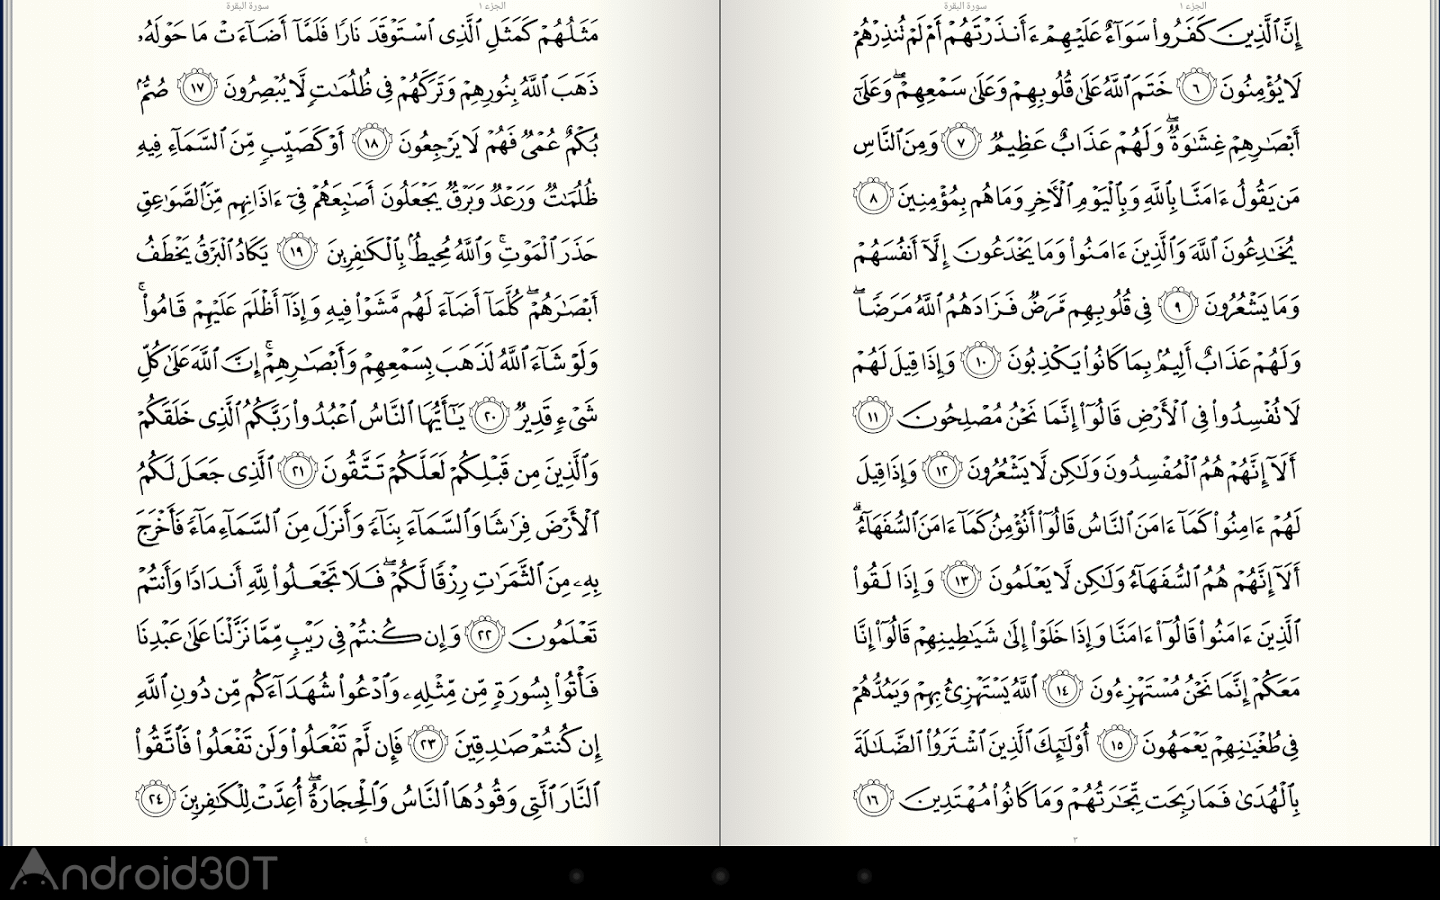 الجزء ١ سورة البقرة
إِنَّ ٱلَّذِينَ كَفَرُوا۟ سَوَآءٌ عَلَيْهِمْ ءَأَنذَرْتَهُمْ أَمْ لَمْ تُنذِرْهُمْ
لَا يُؤْمِنُونَ ٦ خَتَمَ ٱللَّهُ عَلَىٰ قُلُوبِهِمْ وَعَلَىٰ سَمْعِهِمْ ۖ وَعَلَىٰٓ
أَبْصَٰرِهِمْ غِشَٰوَةٌ ۖ وَلَهُمْ عَذَابٌ عَظِيمٌ ٧ وَمِنَ ٱلنَّاسِ
مَن يَقُولُ ءَامَنَّا بِٱللَّهِ وَبِٱلْيَوْمِ ٱلْءَاخِرِ وَمَا هُم بِمُؤْمِنِينَ ٨
يُخَٰدِعُونَ ٱللَّهَ وَٱلَّذِينَ ءَامَنُوا۟ وَمَا يَخْدَعُونَ إِلَّآ أَنفُسَهُمْ
وَمَا يَشْعُرُونَ ٩ فِى قُلُوبِهِم مَّرَضٌ فَزَادَهُمُ ٱللَّهُ مَرَضًا ۖ
وَلَهُمْ عَذَابٌ أَلِيمٌۢ بِمَا كَانُوا۟ يَكْذِبُونَ ١٠ وَإِذَا قِيلَ لَهُمْ
لَا تُفْسِدُوا۟ فِى ٱلْأَرْضِ قَالُوٓا۟ إِنَّمَا نَحْنُ مُصْلِحُونَ ١١
أَلَآ إِنَّهُمْ هُمُ ٱلْمُفْسِدُونَ وَلَٰكِن لَّا يَشْعُرُونَ ١٢ وَإِذَا قِيلَ
لَهُمْ ءَامِنُوا۟ كَمَآ ءَامَنَ ٱلنَّاسُ قَالُوٓا۟ أَنُؤْمِنُ كَمَآ ءَامَنَ ٱلسُّفَهَآءُ ۗ
أَلَآ إِنَّهُمْ هُمُ ٱلسُّفَهَآءُ وَلَٰكِن لَّا يَعْلَمُونَ ١٣ وَإِذَا لَقُوا۟
ٱلَّذِينَ ءَامَنُوا۟ قَالُوٓا۟ ءَامَنَّا وَإِذَا خَلَوْا۟ إِلَىٰ شَيَٰطِينِهِمْ قَالُوٓا۟ إِنَّا
مَعَكُمْ إِنَّمَا نَحْنُ مُسْتَهْزِءُونَ ١٤ ٱللَّهُ يَسْتَهْزِئُ بِهِمْ وَيَمُدُّهُمْ
فِى طُغْيَٰنِهِمْ يَعْمَهُونَ ١٥ أُو۟لَٰٓئِكَ ٱلَّذِينَ ٱشْتَرَوُا۟ ٱلضَّلَٰلَةَ
بِٱلْهُدَىٰ فَمَا رَبِحَت تِّجَٰرَتُهُمْ وَمَا كَانُوا۟ مُهْتَدِينَ ١٦
٣
الجزء ١ سورة البقرة
مَثَلُهُمْ كَمَثَلِ ٱلَّذِى ٱسْتَوْقَدَ نَارًا فَلَمَّآ أَضَآءَتْ مَا حَوْلَهُۥ
ذَهَبَ ٱللَّهُ بِنُورِهِمْ وَتَرَكَهُمْ فِى ظُلُمَٰتٍ لَّا يُبْصِرُونَ ١٧ صُمٌّۢ
بُكْمٌ عُمْىٌ فَهُمْ لَا يَرْجِعُونَ ١٨ أَوْ كَصَيِّبٍ مِّنَ ٱلسَّمَآءِ فِيهِ
ظُلُمَٰتٌ وَرَعْدٌ وَبَرْقٌ يَجْعَلُونَ أَصَٰبِعَهُمْ فِىٓ ءَاذَانِهِم مِّنَ ٱلصَّوَٰعِقِ
حَذَرَ ٱلْمَوْتِ ۚ وَٱللَّهُ مُحِيطٌۢ بِٱلْكَٰفِرِينَ ١٩ يَكَادُ ٱلْبَرْقُ يَخْطَفُ
أَبْصَٰرَهُمْ ۖ كُلَّمَآ أَضَآءَ لَهُم مَّشَوْا۟ فِيهِ وَإِذَآ أَظْلَمَ عَلَيْهِمْ قَامُوا۟ ۚ
وَلَوْ شَآءَ ٱللَّهُ لَذَهَبَ بِسَمْعِهِمْ وَأَبْصَٰرِهِمْ ۚ إِنَّ ٱللَّهَ عَلَىٰ كُلِّ
شَىْءٍ قَدِيرٌ ٢٠ يَٰٓأَيُّهَا ٱلنَّاسُ ٱعْبُدُوا۟ رَبَّكُمُ ٱلَّذِى خَلَقَكُمْ
وَٱلَّذِينَ مِن قَبْلِكُمْ لَعَلَّكُمْ تَتَّقُونَ ٢١ ٱلَّذِى جَعَلَ لَكُمُ
ٱلْأَرْضَ فِرَٰشًا وَٱلسَّمَآءَ بِنَآءً وَأَنزَلَ مِنَ ٱلسَّمَآءِ مَآءً فَأَخْرَجَ
بِهِۦ مِنَ ٱلثَّمَرَٰتِ رِزْقًا لَّكُمْ ۖ فَلَا تَجْعَلُوا۟ لِلَّهِ أَندَادًا وَأَنتُمْ
تَعْلَمُونَ ٢٢ وَإِن كُنتُمْ فِى رَيْبٍ مِّمَّا نَزَّلْنَا عَلَىٰ عَبْدِنَا
فَأْتُوا۟ بِسُورَةٍ مِّن مِّثْلِهِۦ وَٱدْعُوا۟ شُهَدَآءَكُم مِّن دُونِ ٱللَّهِ
إِن كُنتُمْ صَٰدِقِينَ ٢٣ فَإِن لَّمْ تَفْعَلُوا۟ وَلَن تَفْعَلُوا۟ فَٱتَّقُوا۟
ٱلنَّارَ ٱلَّتِى وَقُودُهَا ٱلنَّاسُ وَٱلْحِجَارَةُ ۖ أُعِدَّتْ لِلْكَٰفِرِينَ ٢٤
٤
Android30T